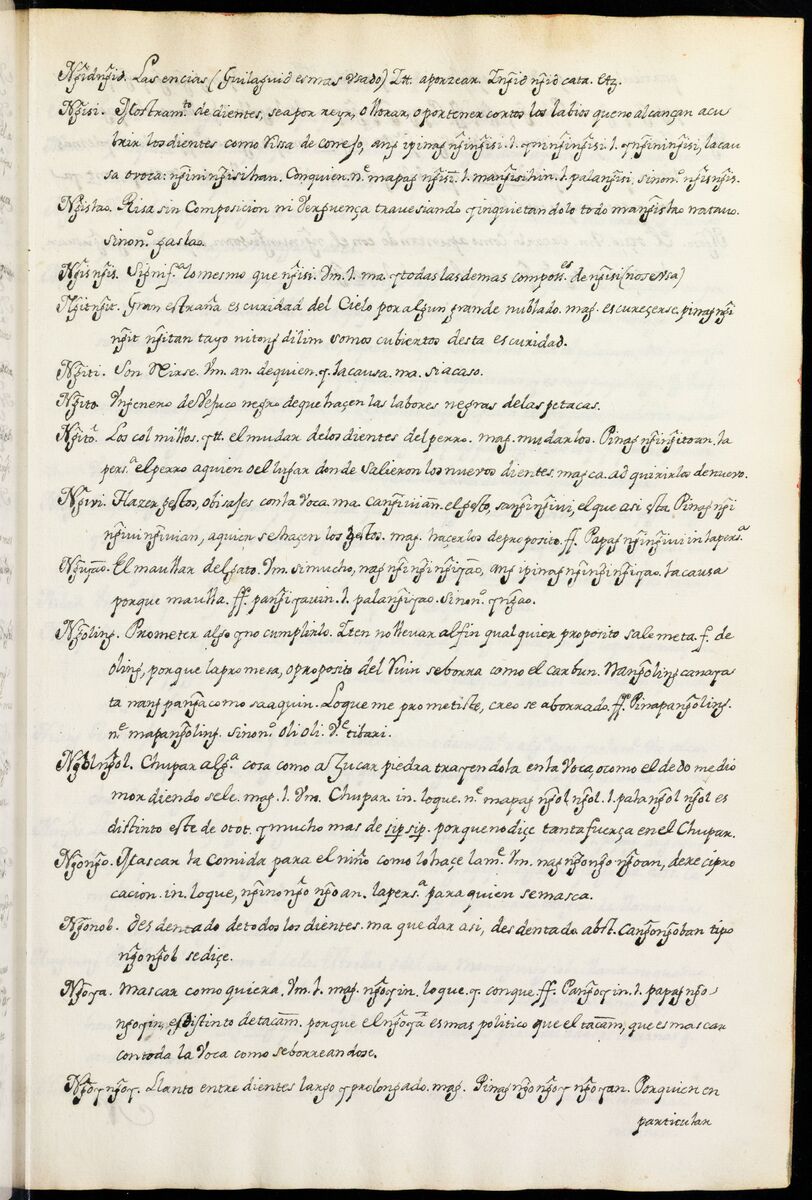 Ng̃idng̃id. Las encias (Guilaguid es mas Vsado) Itt. aporrear. Ing̃id ng̃id cata. Etz.
Ng̃isi. Mostram.to de dientes, sea por reyr, o llorar, o por tener cortos los labios que no alcançan acu
brir los dientes como Rissa de conejo, ang ipinag ng̃ing̃isi. l. q ning̃ing̃isi. l. q ng̃ining̃isi, la cau
sa o voca: ng̃ining̃isihan. Con quien. n.c mapag ng̃isi. l. mang̃isihin. l. palang̃isi, sinon.o ng̃isng̃is.
Ng̃islao. Risa sin Composicion ni Verguença travesiando q inquietandolo todo mang̃islao natauo.
sinon.o gaslao.
Ng̃isng̃is. Signif.a lo mesmo que ng̃isi. Vm. l. ma. q todas las demas composis.es de ng̃isi (no se Vsa)
Ng̃itng̃it. Gran estraña escuridad del Cielo por algun grande nublado. mag. escureçerse. pinag ng̃i
ng̃it ng̃itan tayo nitong dilim somos cubiertos desta escuridad.
Ng̃iti. Son Reirse. Vm. an. de quien. q. la causa. ma. si acaso.
Ng̃ito. Vn genero de Vejuco negro de que haçen las labores negras de las petacas.
Ng̃ito. Los colmillos. q tt. el mudar de los dientes del perro. mag. mudarlos. Pinag ng̃ing̃itoan. la
pers.a el perro a quien o el lugar donde salieron los nuevos dientes. magca. adquirirlos de nuevo.
Ng̃ivi. Hazer gestos, o bisajes con la Voca. ma. cang̃ivian. el gesto, sang̃ing̃ivi, el que asi esta Pinag ng̃i
ng̃ivi ng̃ivian, a quien se haçen los gestos. mag. haçerlos de proposito. ff. Papag ng̃ing̃ivi in la pers.a
Ng̃iyao. El maullar del gato. Vm. si mucho, nag ng̃ing̃ing̃iyao, ang ipinag ng̃ing̃ing̃iyao. la causa
porque maulla. ff. pang̃iyauin. l. palang̃iyao. Sinon.o q ng̃ao.
Ng̃oling. Prometer algo q no cumplirlo. Iten no llevar al fin qual quier proposito sale meta. f. de
oling, porque la promesa, o proposito del Ruin se borra como el carbun. Nang̃oling canaya
ta nang pang̃aco mo sa aquin. Lo que me prometiste, creo se a borrado. ff. Pinapang̃oling.
n.c mapang̃oling. sinon.o oli oli. V.e libari.
Ng̃olng̃ol. Chupar alg.a cosa como aZucar piedra trayendola en la Voca, o como el dedo medio
mordiendosele. mag. l. Vm. Chupar. in. lo que. n.c mapag ng̃ol ng̃ol. l. palang̃ol ng̃ol es
distinto este de otot. q mucho mas de sipsip. porque no diçe tanta fuerça en el Chupar.
Ng̃ong̃o. Mascar la Comida para el niño como lo haçe la m.e Vm. nag ng̃ong̃o ng̃oan, de recipro
cacion. in. lo que, ng̃inong̃o ng̃oan. la pers.a para quien se masca.
Ng̃ong̃ob. Desdentado de todos los dientes. ma quedar asi, desdentado. abst. Cang̃ong̃oban tipo
ng̃ong̃ob se diçe.
Ng̃oya. Mascar como quiera. Vm. l. mag. ng̃oyin. lo que. q. con que. ff. Pang̃oyin. l. papag ng̃o-
ng̃oyin. es Distinto de tacam. porque el ng̃oya es mas politico que el tacam, que es mascar
con toda la Voca como saboreandose.
Ng̃oyng̃oy. Llanto entre dientes largo q prolongado. mag. Pinag ng̃ong̃oy ng̃oyan. Por quien en
particular